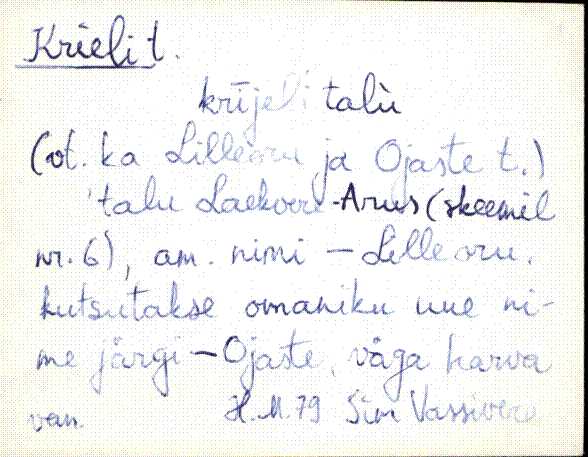 Krieli t.
krījeli talù
(vt. ka Lilleoru ja Ojaste t.)
'talu Laekvere-Arus (skeemil
nr. 6), am. nimi — Lilleoru.
kutsutakse omaniku uue ni-
me järgi — Ojaste, väga harva
van. H. M. 79 Sim Vassivere